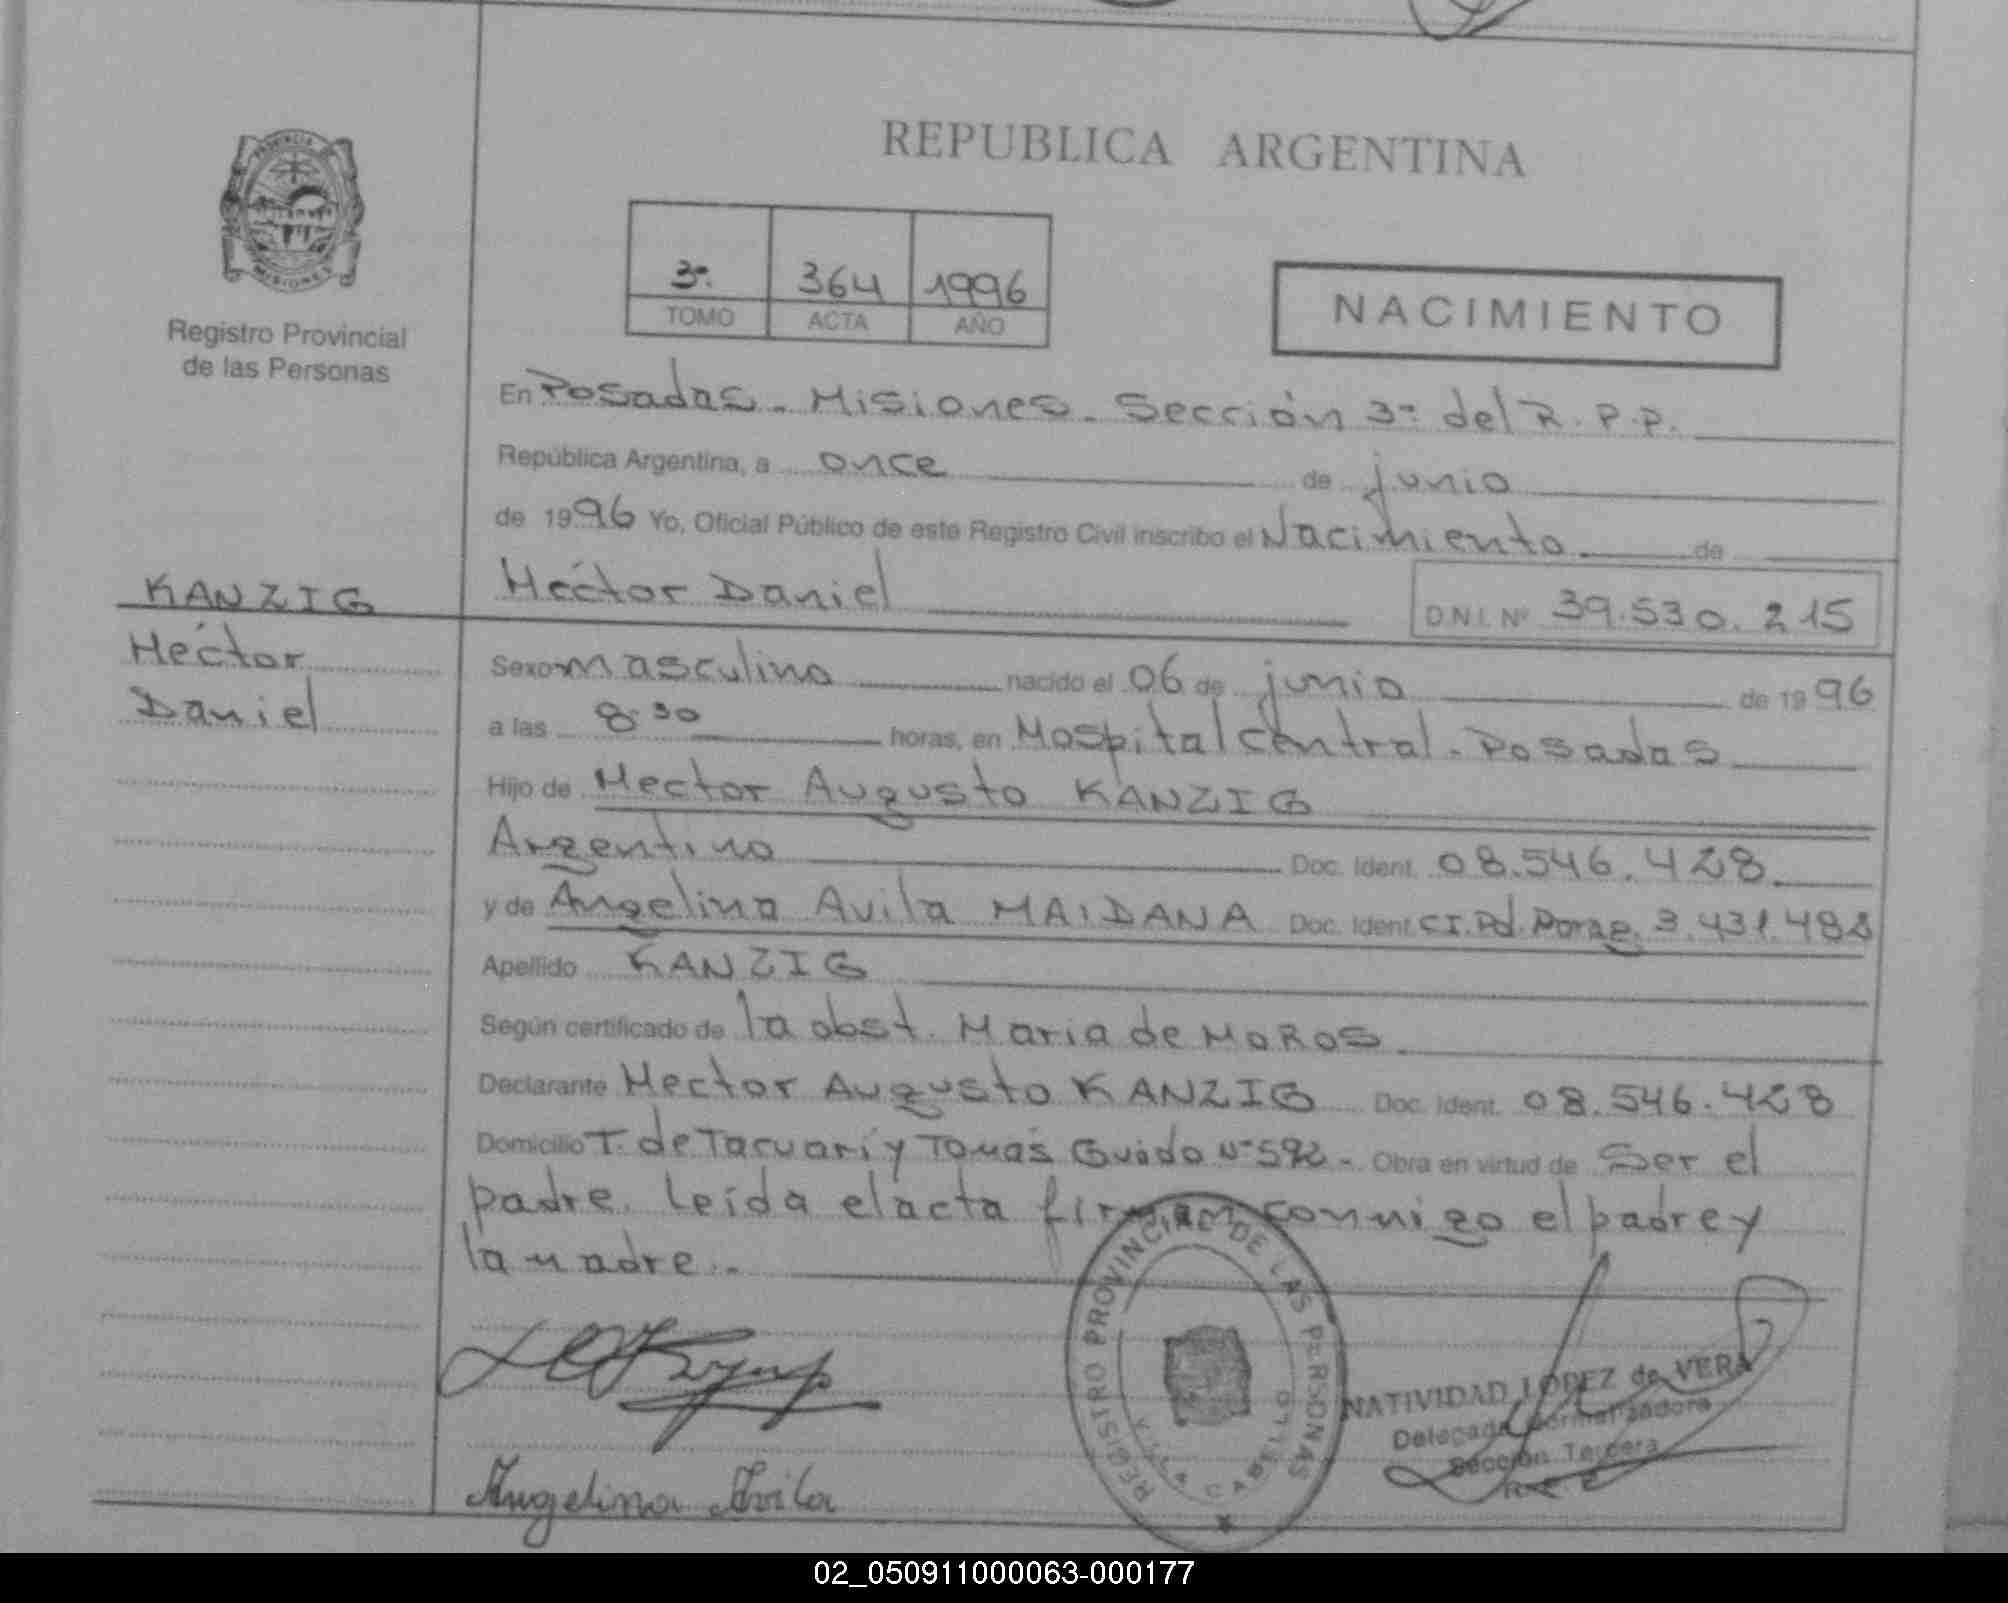 REPUBLICA ARGENTINA
PROVINCIA DE
MISIONES
Registro Provincial
de las Personas
3ª 364 1996
TOMO ACTA AÑO
NACIMIENTO
En Posadas - Misiones - Sección 3ª del R.P.P.
República Argentina, a once de junio
de 1996 Yo, Oficial Público de este Registro Civil inscribo el Nacimiento de
KANZIG
Héctor
Daniel
Héctor Daniel D.N.I. Nº 39.530.215
Sexo masculino nacido el 06 de junio de 1996
a las 8:30 horas, en Hospital Central - Posadas
Hijo de Hector Augusto KANZIG
Argentino Doc. Ident. 08.546.428
y de Angelina Avila MAIDANA Doc. Ident. C.I. Pol. Parag. 3.431.488
Apellido KANZIG
Según certificado de la obst. Maria de MOROS
Declarante Hector Augusto KANZIG Doc. Ident. 08.546.428
Domicilio T. de Tacuarí y Tomás Guido Nº 592 - Obra en virtud de Ser el
padre. Leída el acta firman conmigo el padre y
la madre.-
Angelina Avila
REGISTRO PROVINCIAL DE LAS PERSONAS
VILLA CABELLO
NATIVIDAD LOPEZ de VERA
Delegada Normalizadora
Sección Tercera
02_050911000063-000177